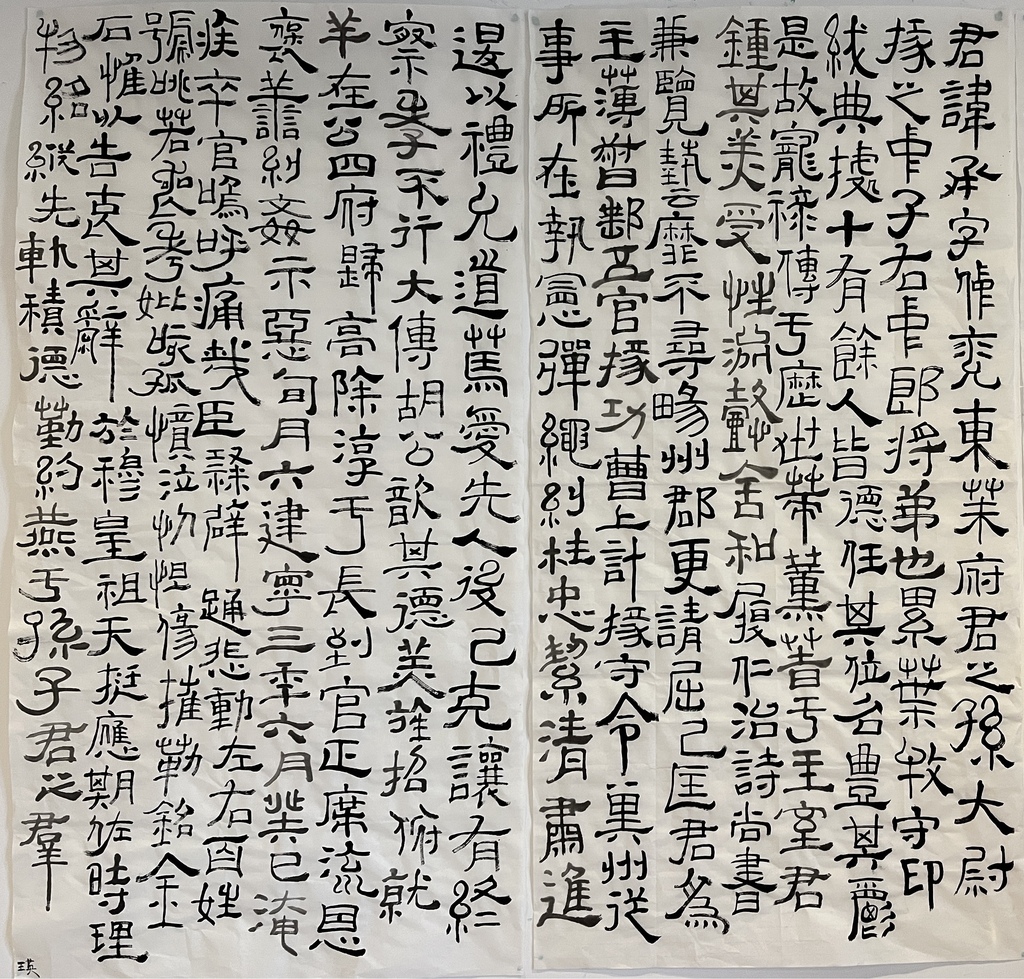 君諱承字仲兗東萊府君之孫大尉
掾之中子右中郎將弟也累葉牧守印
紱典據十有餘人皆德任其位名豊其爵
是故寵祿傳于歷世策薰著于王室君
鍾其美受性淵懿含和履仁治詩尚書
兼覽藝靡不尋暢州郡更請屈己匡君為
主薄督郵五官掾功曹上計掾守令冀州從
事所在執憲彈繩糾枉忠絜清肅進
退以禮允道篤愛先人後己克讓有終
察孝不行大傅胡公歆其德美旌招俯就
羊在公四府歸高除淳于長到官正席流恩
襃善糾姦示惡旬月六建寧三年六月癸巳淹
疾卒官嗚呼痛哉臣隸辟踊悲動左右百姓
號咷若喪考妣咳孤憤泣忉怛傷摧勒銘金
石惟以告哀其辭於穆皇祖天挺應期佐時理
物紹縱先軌積德勤約燕于孫子君之羣
瑛